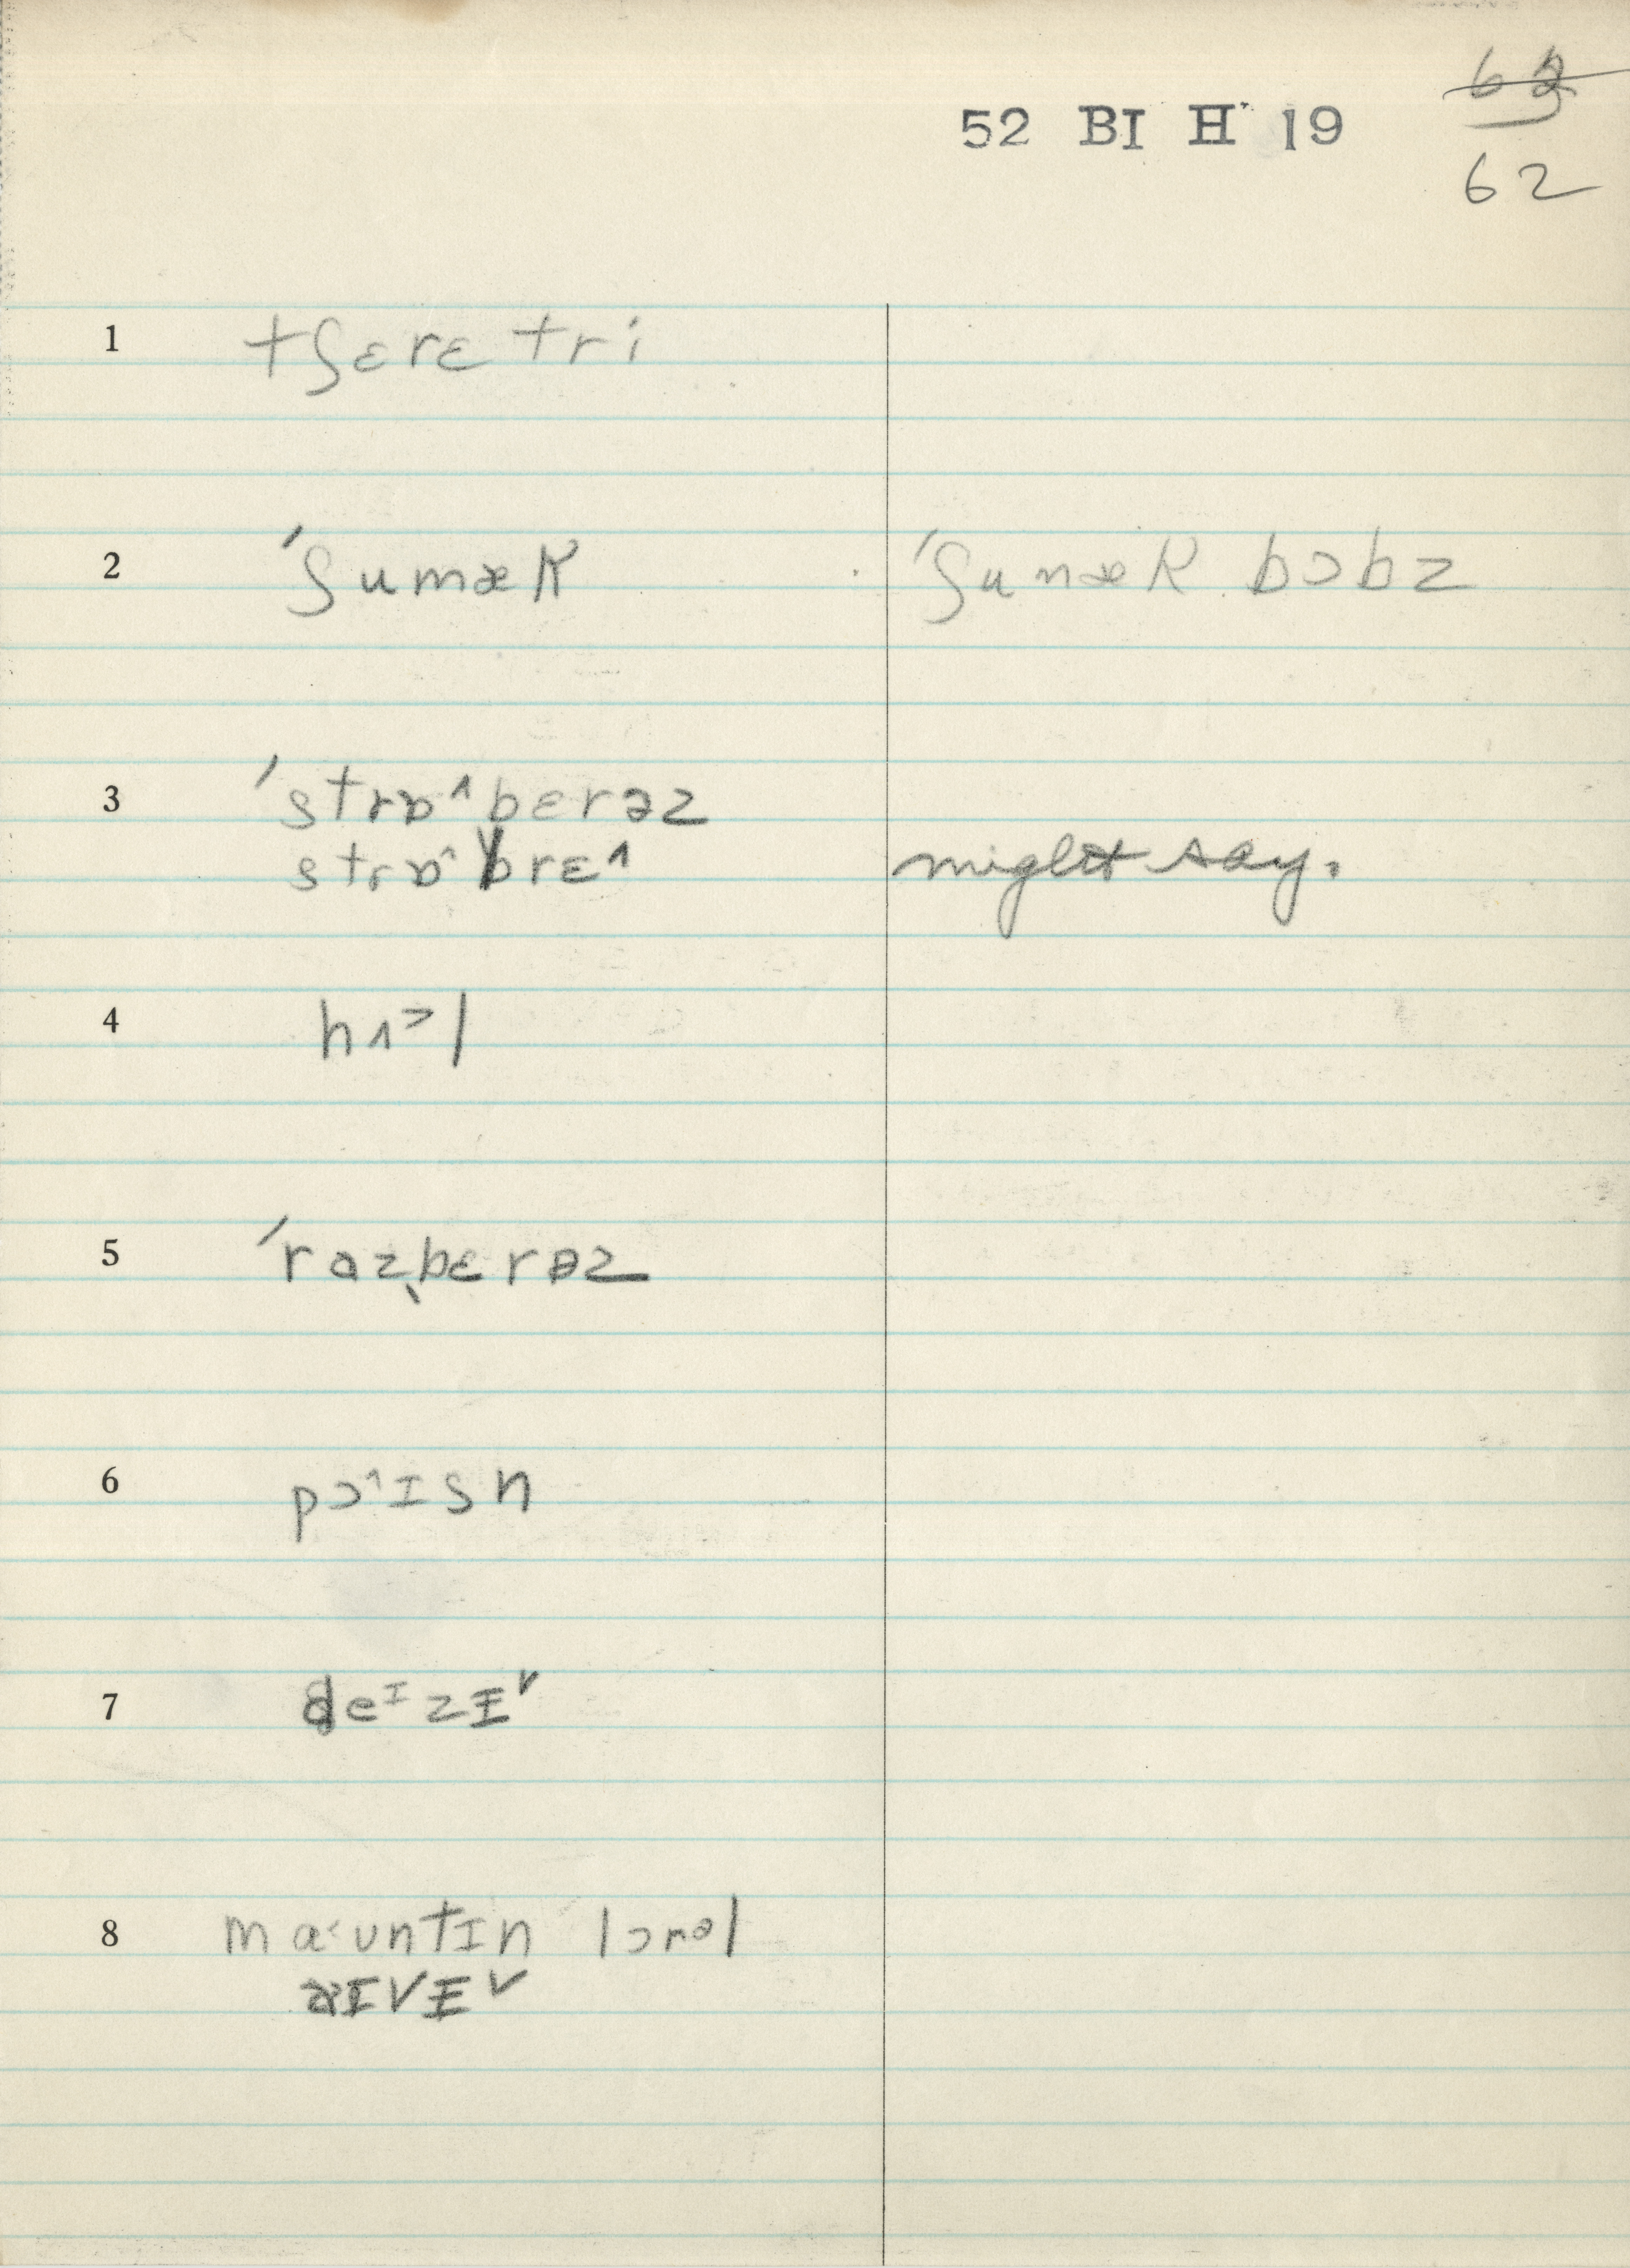 52 BI H 19
62
1 tʃɛrɛ tri
2 ˈʃumæk ˈʃumæk bɔbz
3 ˈstrɒ˄bɛrəz
strɒ˄brɛ˄ might say.
4 hɪ˃l
5 ˈrazˌbɛrəz
6 pɔ˄ɪsn
7 deᶦzɪ˅
8 ma˂ʊntɪn lɔrəl